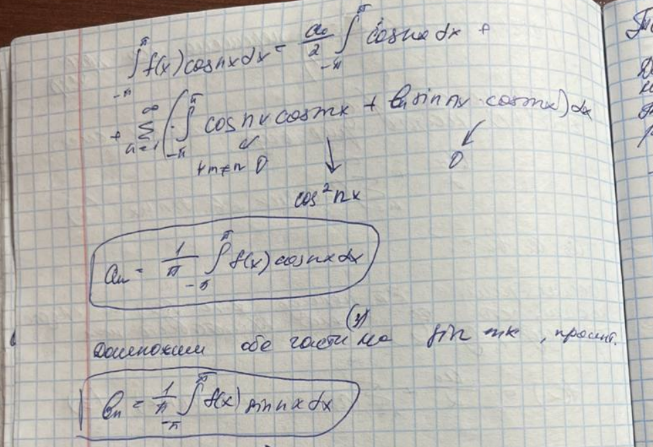 ∫_{-π}^{π} f(x) cos nx dx = a₀/2 ∫_{-π}^{π} cos nx dx +
+ ∑_{n=1}^{∞} ( ∫_{-π}^{π} cos nx cos mx + bₙ sin nx · cos mx ) dx
∀ m≠n 0
0
cos² nx
aₙ = 1/π ∫_{-π}^{π} f(x) cos nx dx
Домножим обе части (1) на sin mx,
bₙ = 1/π ∫_{-π}^{π} f(x) sin nx dx